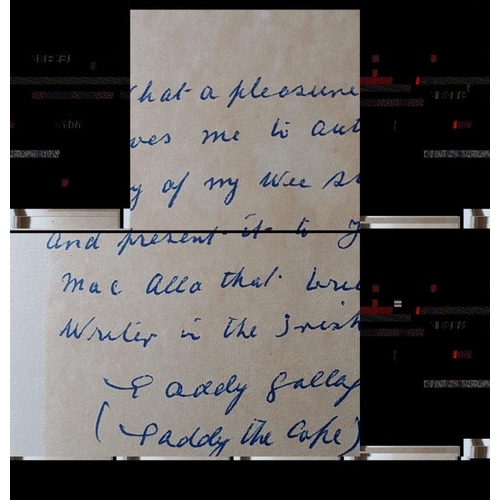 hat a pleasure
oes me to aut
y of my wee st
and present it to J
Mac Alla that brie
Writer in the Irish
Paddy Gallag
(Paddy the Cope)